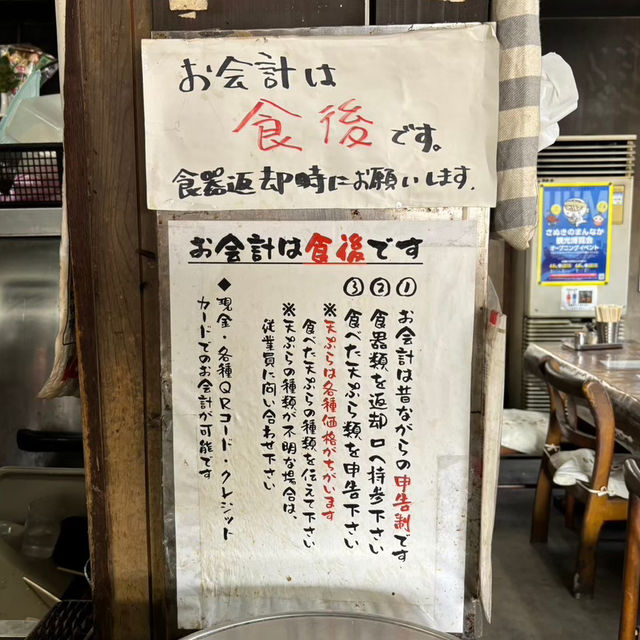 お会計は
食後です。
食器返却時にお願いします.
お会計は食後です
① お会計は昔ながらの申告制です
② 食器類を返却口へ持参下さい
③ 食べた天ぷら類を申告下さい
※天ぷらは各種価格がちがいます
食べた天ぷらの種類を伝えて下さい
※天ぷらの種類が不明な場合は、
従業員に問い合わせ下さい
◆現金・各種QRコード・クレジット
カードでのお会計が可能です
さぬきのまんなか
観光博覧会
オープニングイベント